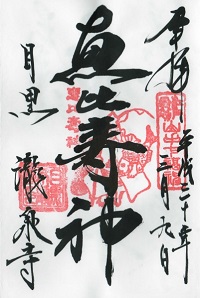 奉拝
平成二十年
二月九日
恵比寿神
目黒
瀧泉寺